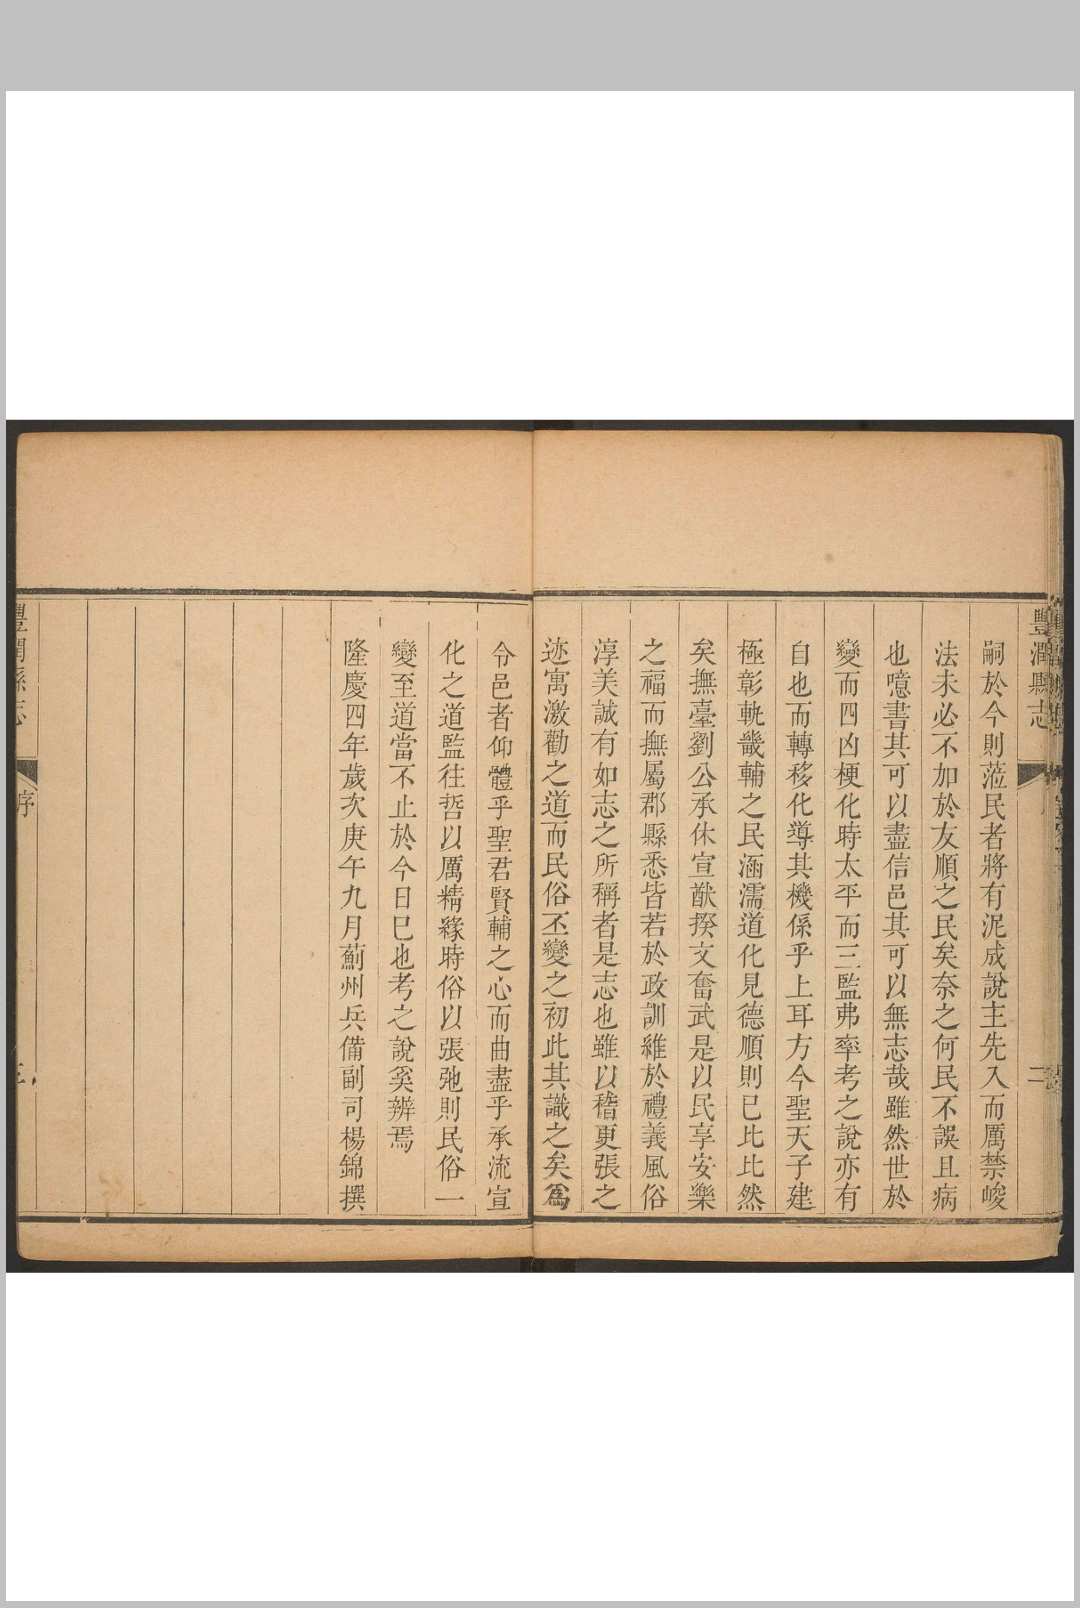 豐潤縣志
二
嗣於今則蒞民者將有泥成說主先入而厲禁峻
法未必不加於友順之民矣奈之何民不誤且病
也噫書其可以盡信邑其可以無志哉雖然世於
變而四凶梗化時太平而三監弗率考之說亦有
自也而轉移化導其機係乎上耳方今聖天子建
極彰軌畿輔之民涵濡道化見德順則已比比然
矣撫臺劉公承休宣猷揆文奮武是以民享安樂
之福而撫屬郡縣悉皆若於政訓維於禮義風俗
淳美誠有如志之所稱者是志也雖以稽更張之
迹寓激勸之道而民俗丕變之初此其識之矣爲
令邑者仰體乎聖君賢輔之心而曲盡乎承流宣
化之道監往哲以厲精緣時俗以張弛則民俗一
變至道當不止於今日巳也考之說奚辨焉
隆慶四年歲次庚午九月薊州兵備副司楊錦撰
豐潤縣志
序
三